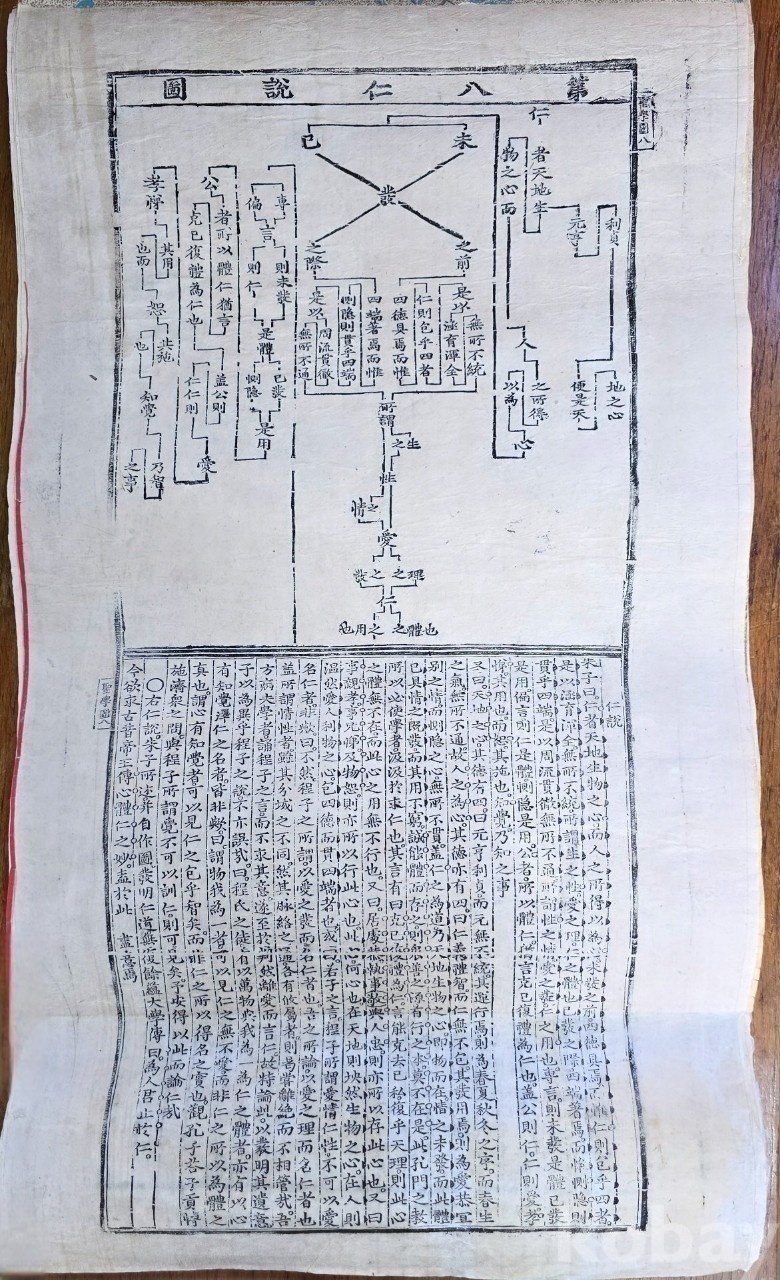 第八仁說圖
聖學圖八
仁
者天地生
物之心而
元亨
利貞
便是天
地之心
人
之所得
以為
心
未
已
發
之前
之際
是以
無所不統
涵育渾全
仁則包乎四者
四德具焉而惟
四端著焉而惟
惻隱則貫乎四端
周流貫徹
是以
無所不通
所謂
生之
性
之情
愛
之理
之發
仁
之體也
之用也
專
偏
言
則未發
則仁
是體
已發
惻隱
是用
公
者所以體仁猶言
克己復禮為仁也
蓋公則
仁仁則
愛
孝悌
其用
也而
恕
其施
也
知覺
乃智
之事
仁說
朱子曰仁者天地生物之心而人之所得以為心未發之前四德具焉而惟仁則包乎四者
是以涵育渾全無所不統所謂生之性愛之理仁之體也已發之際四端著焉而惟惻隱則
貫乎四端是以周流貫徹無所不通所謂性之情愛之發仁之用也專言則未發是體已發
是用偏言則仁是體惻隱是用公者所以體仁猶言克己復禮為仁也蓋公則仁仁則愛孝
悌其用也而恕其施也知覺乃知之事
又曰天地之心其德有四曰元亨利貞而元無不統其運行焉則為春夏秋冬之序而春生
之氣無所不通故人之為心其德亦有四曰仁義禮智而仁無不包其發用焉則為愛恭宜
別之情而惻隱之心無所不貫蓋仁之為道乃天地生物之心即物而在情之未發而此體
已具情之既發而其用不窮誠能體而存之則衆善之源百行之本莫不在是此孔門之教
所以必使學者汲汲於求仁也其言有曰克己復禮為仁言能克去己私復乎天理則此心
之體無不在而此心之用無不行也又曰居處恭執事敬與人忠則亦所以存此心也又曰
事親孝事兄悌及物恕則亦所以行此心也此心何心也在天地則坱然生物之心在人則
溫然愛人利物之心包四德而貫四端者也或曰若子之言程子所謂愛情仁性不可以愛
名仁者非歟曰不然程子之所謂以愛之發而名仁者也吾之所論以愛之理而名仁者也
蓋所謂情性者雖其分域之不同然其脉絡之通各有攸屬者則曷嘗離絶而不相管哉吾
方病夫學者誦程子之言而不求其意遂至於判然離愛而言仁故特論此以發明其遺意
子以為異乎程子之說不亦誤哉曰程氏之徒有以萬物與我為一為仁之體者亦有以心
有知覺釋仁之名者皆非歟曰謂物我為一者可以見仁之無不愛而非仁之所以為體之
真也謂心有知覺者可以見仁之包乎智矣而非仁之所以得名之實也觀孔子答子貢博
施濟衆之問與程子所謂覺不可以訓仁則可見矣子安得以此而論仁哉
○右仁說朱子所述并自作圖發明仁道無復餘蘊大學傳曰為人君止於仁
今欲求古昔帝王傳心體仁之妙盍於此盡意焉
聖學圖八
kobay